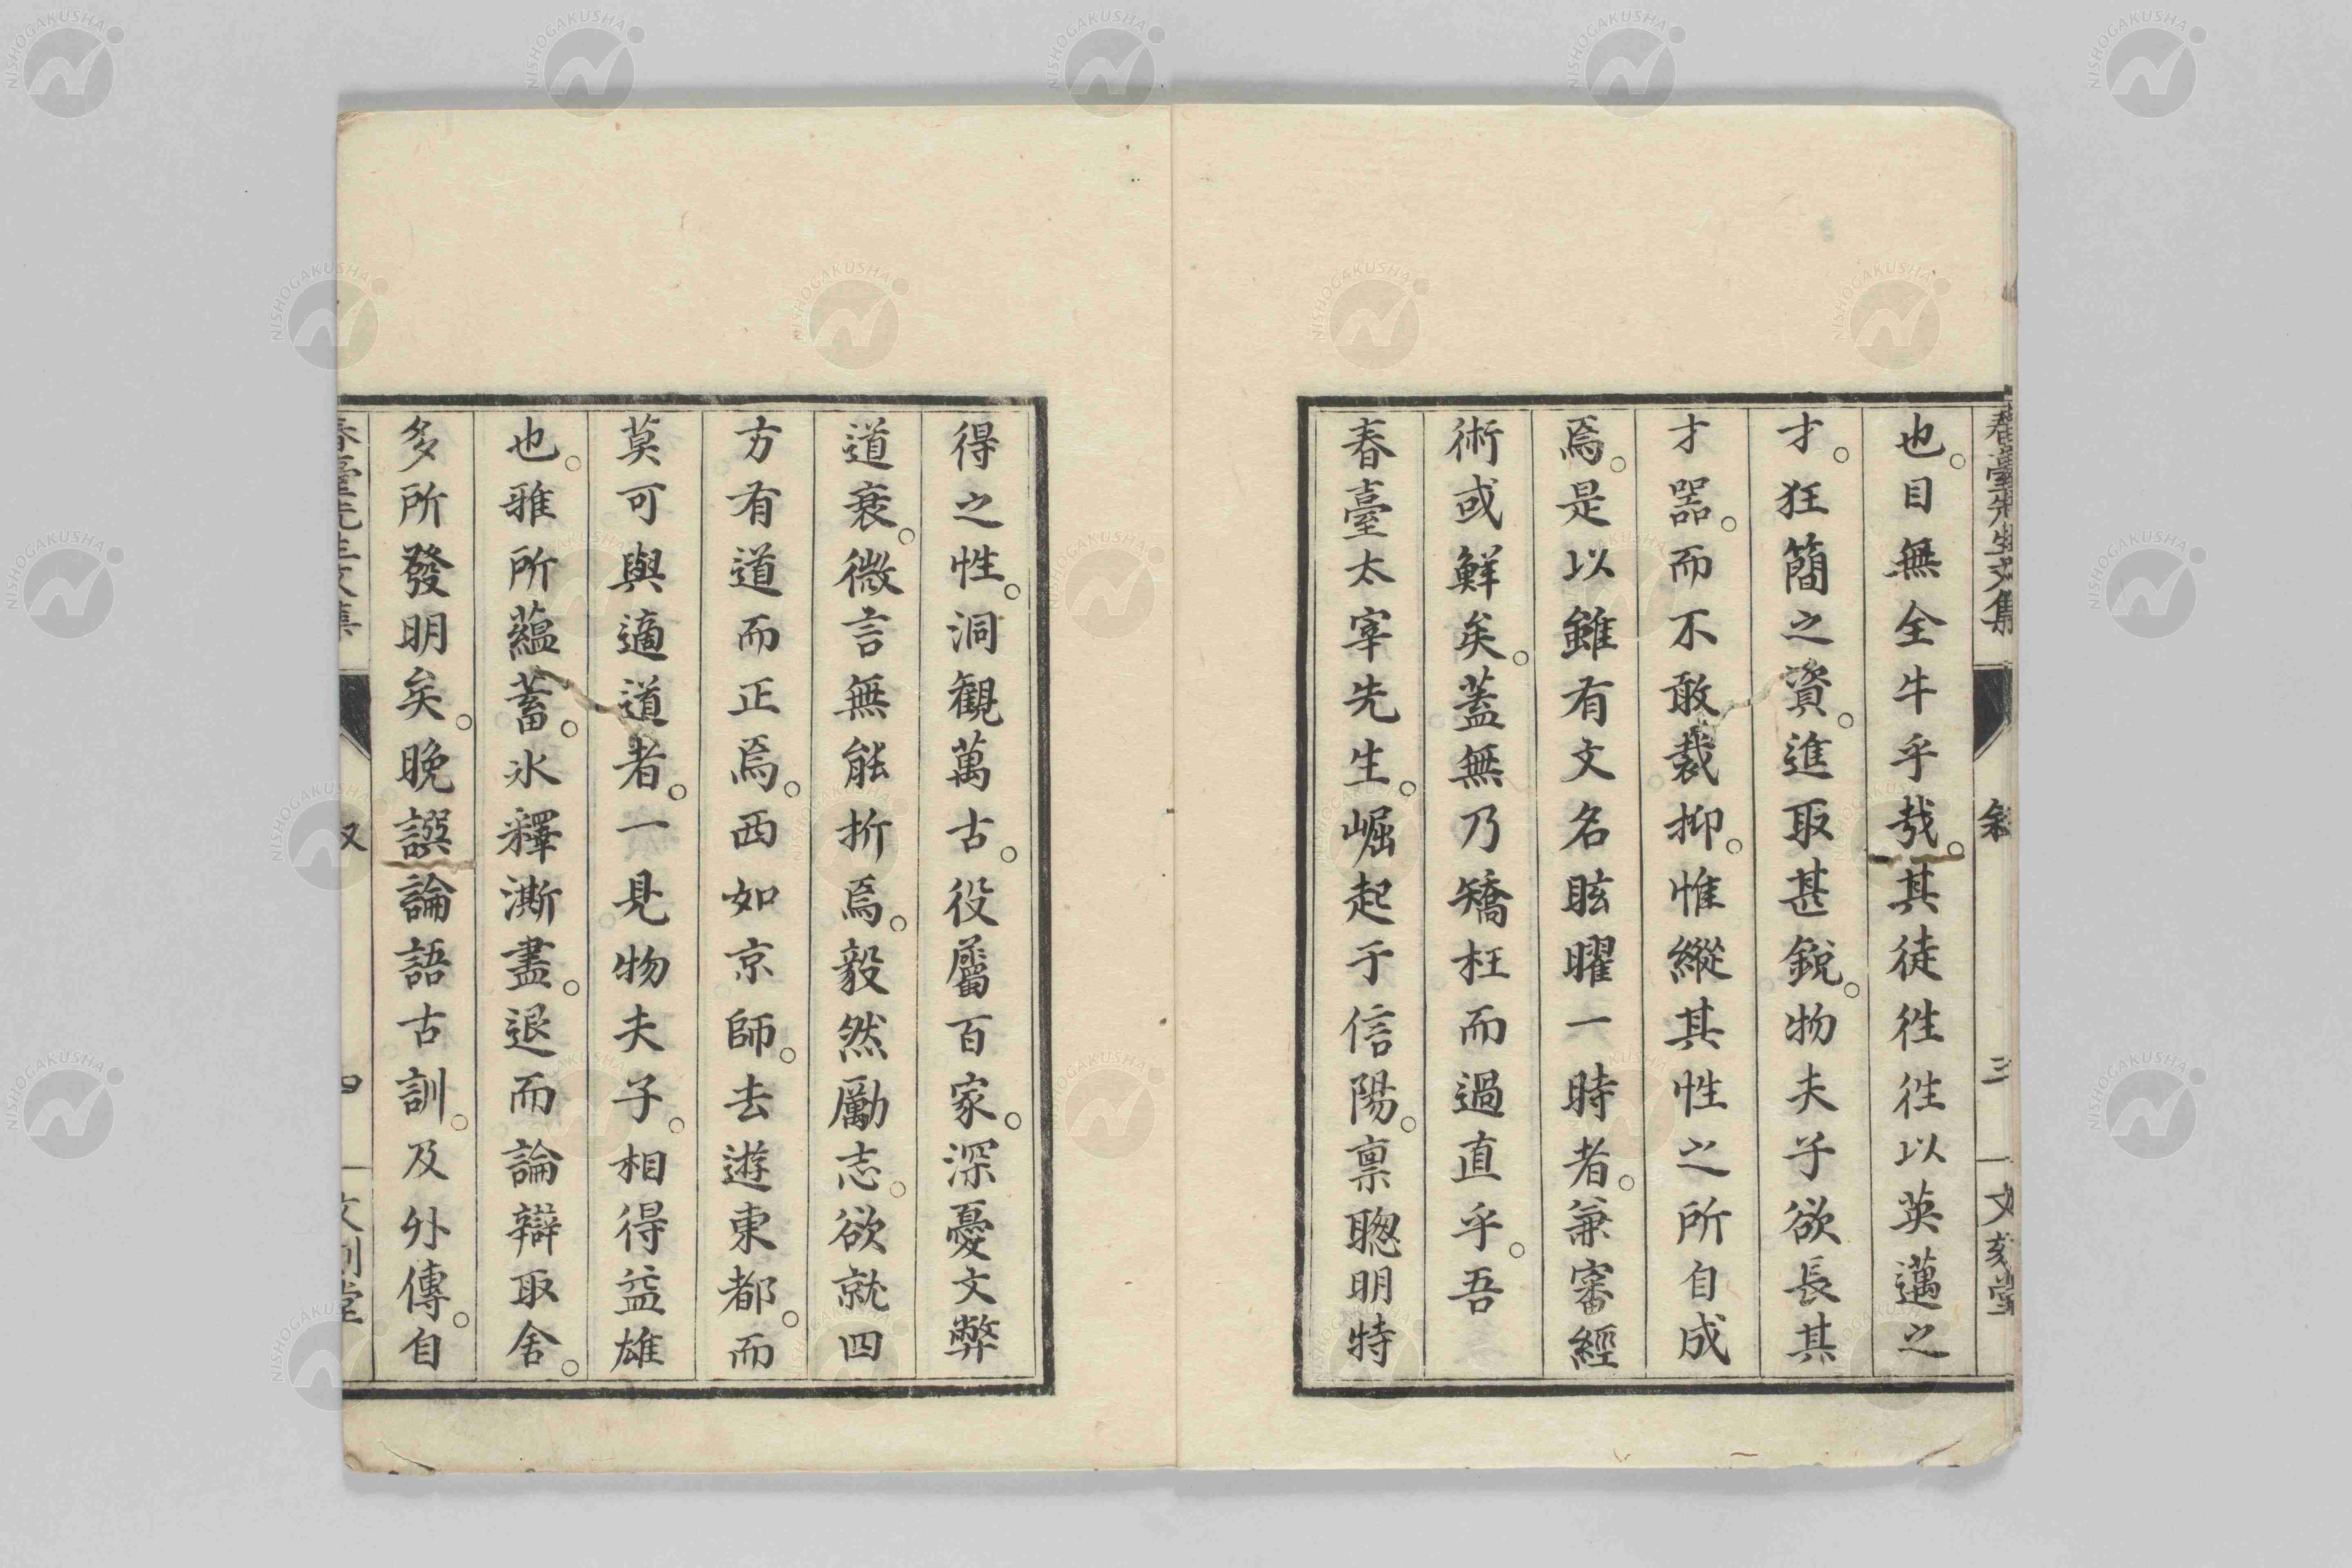 春臺先生文集 敘 三 文刻堂
也。目無全牛乎哉。其徒徃徃以英邁之
才。狂簡之資。進取甚銳。物夫子欲長其
才器。而不敢裁抑。惟縱其性之所自成
焉。是以雖有文名眩曜一時者。兼審經
術或鮮矣。蓋無乃矯枉而過直乎。吾
春臺太宰先生。崛起于信陽。禀聰明特
得之性。洞觀萬古。役屬百家。深憂文弊
道衰。微言無能折焉。毅然勵志。欲就四
方有道而正焉。西如京師。去遊東都。而
莫可與適道者。一見物夫子。相得益雄
也。雅所蘊蓄。氷釋澌盡。退而論辯取舍。
多所發明矣。晚譔論語古訓。及外傳。自
春臺先生文集 四 文刻堂
NISHOGAKUSHA